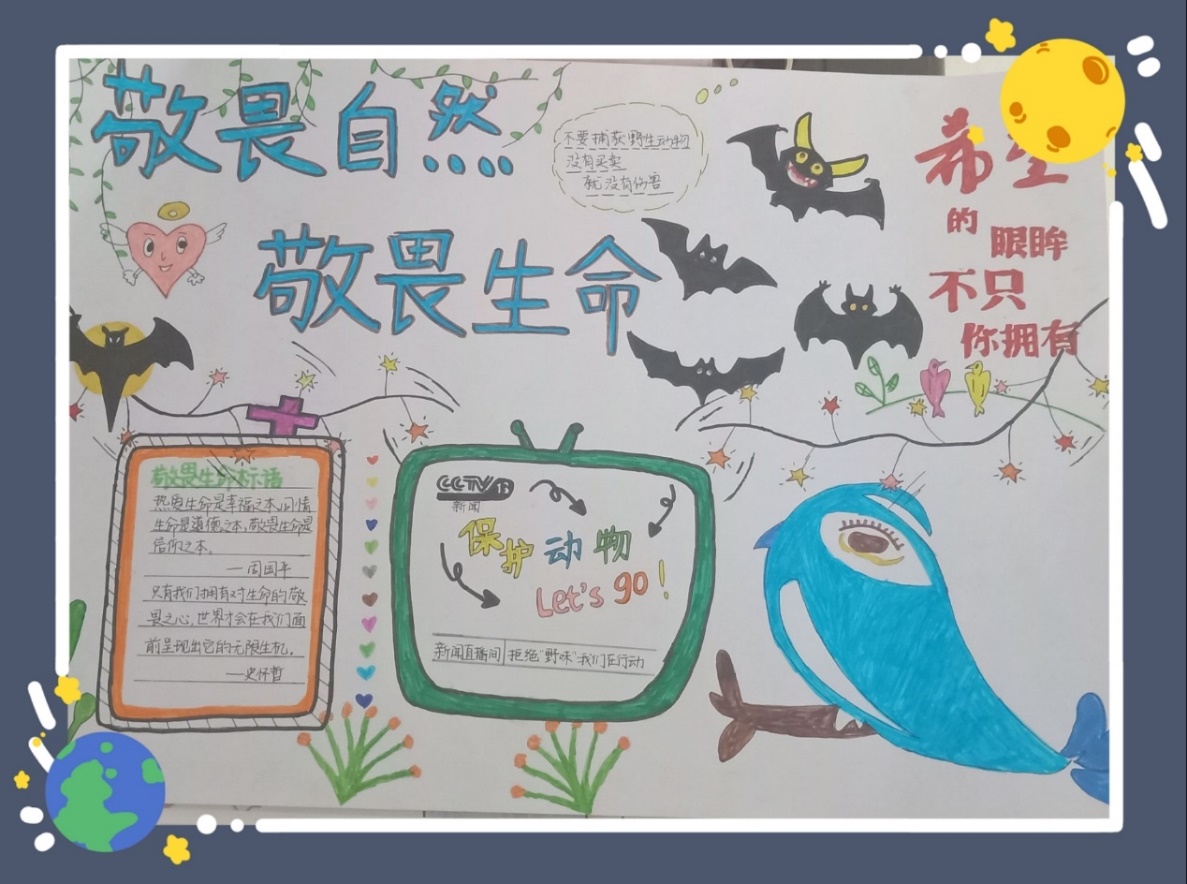 敬畏自然
敬畏生命
不要捕获野生动物
没有买卖
就没有伤害
希望
的
眼眸
不只
你拥有
敬畏生命标语
热爱生命是幸福之本,同情
生命是道德之本,敬畏生命是
信仰之本。
—周国平
只有我们拥有对生命的敬
畏之心,世界才会在我们面
前呈现出它的无限生机。
—史怀哲
CCTV 13
新闻
保护动物
Let's go!
新闻直播间 拒绝"野味"我们在行动